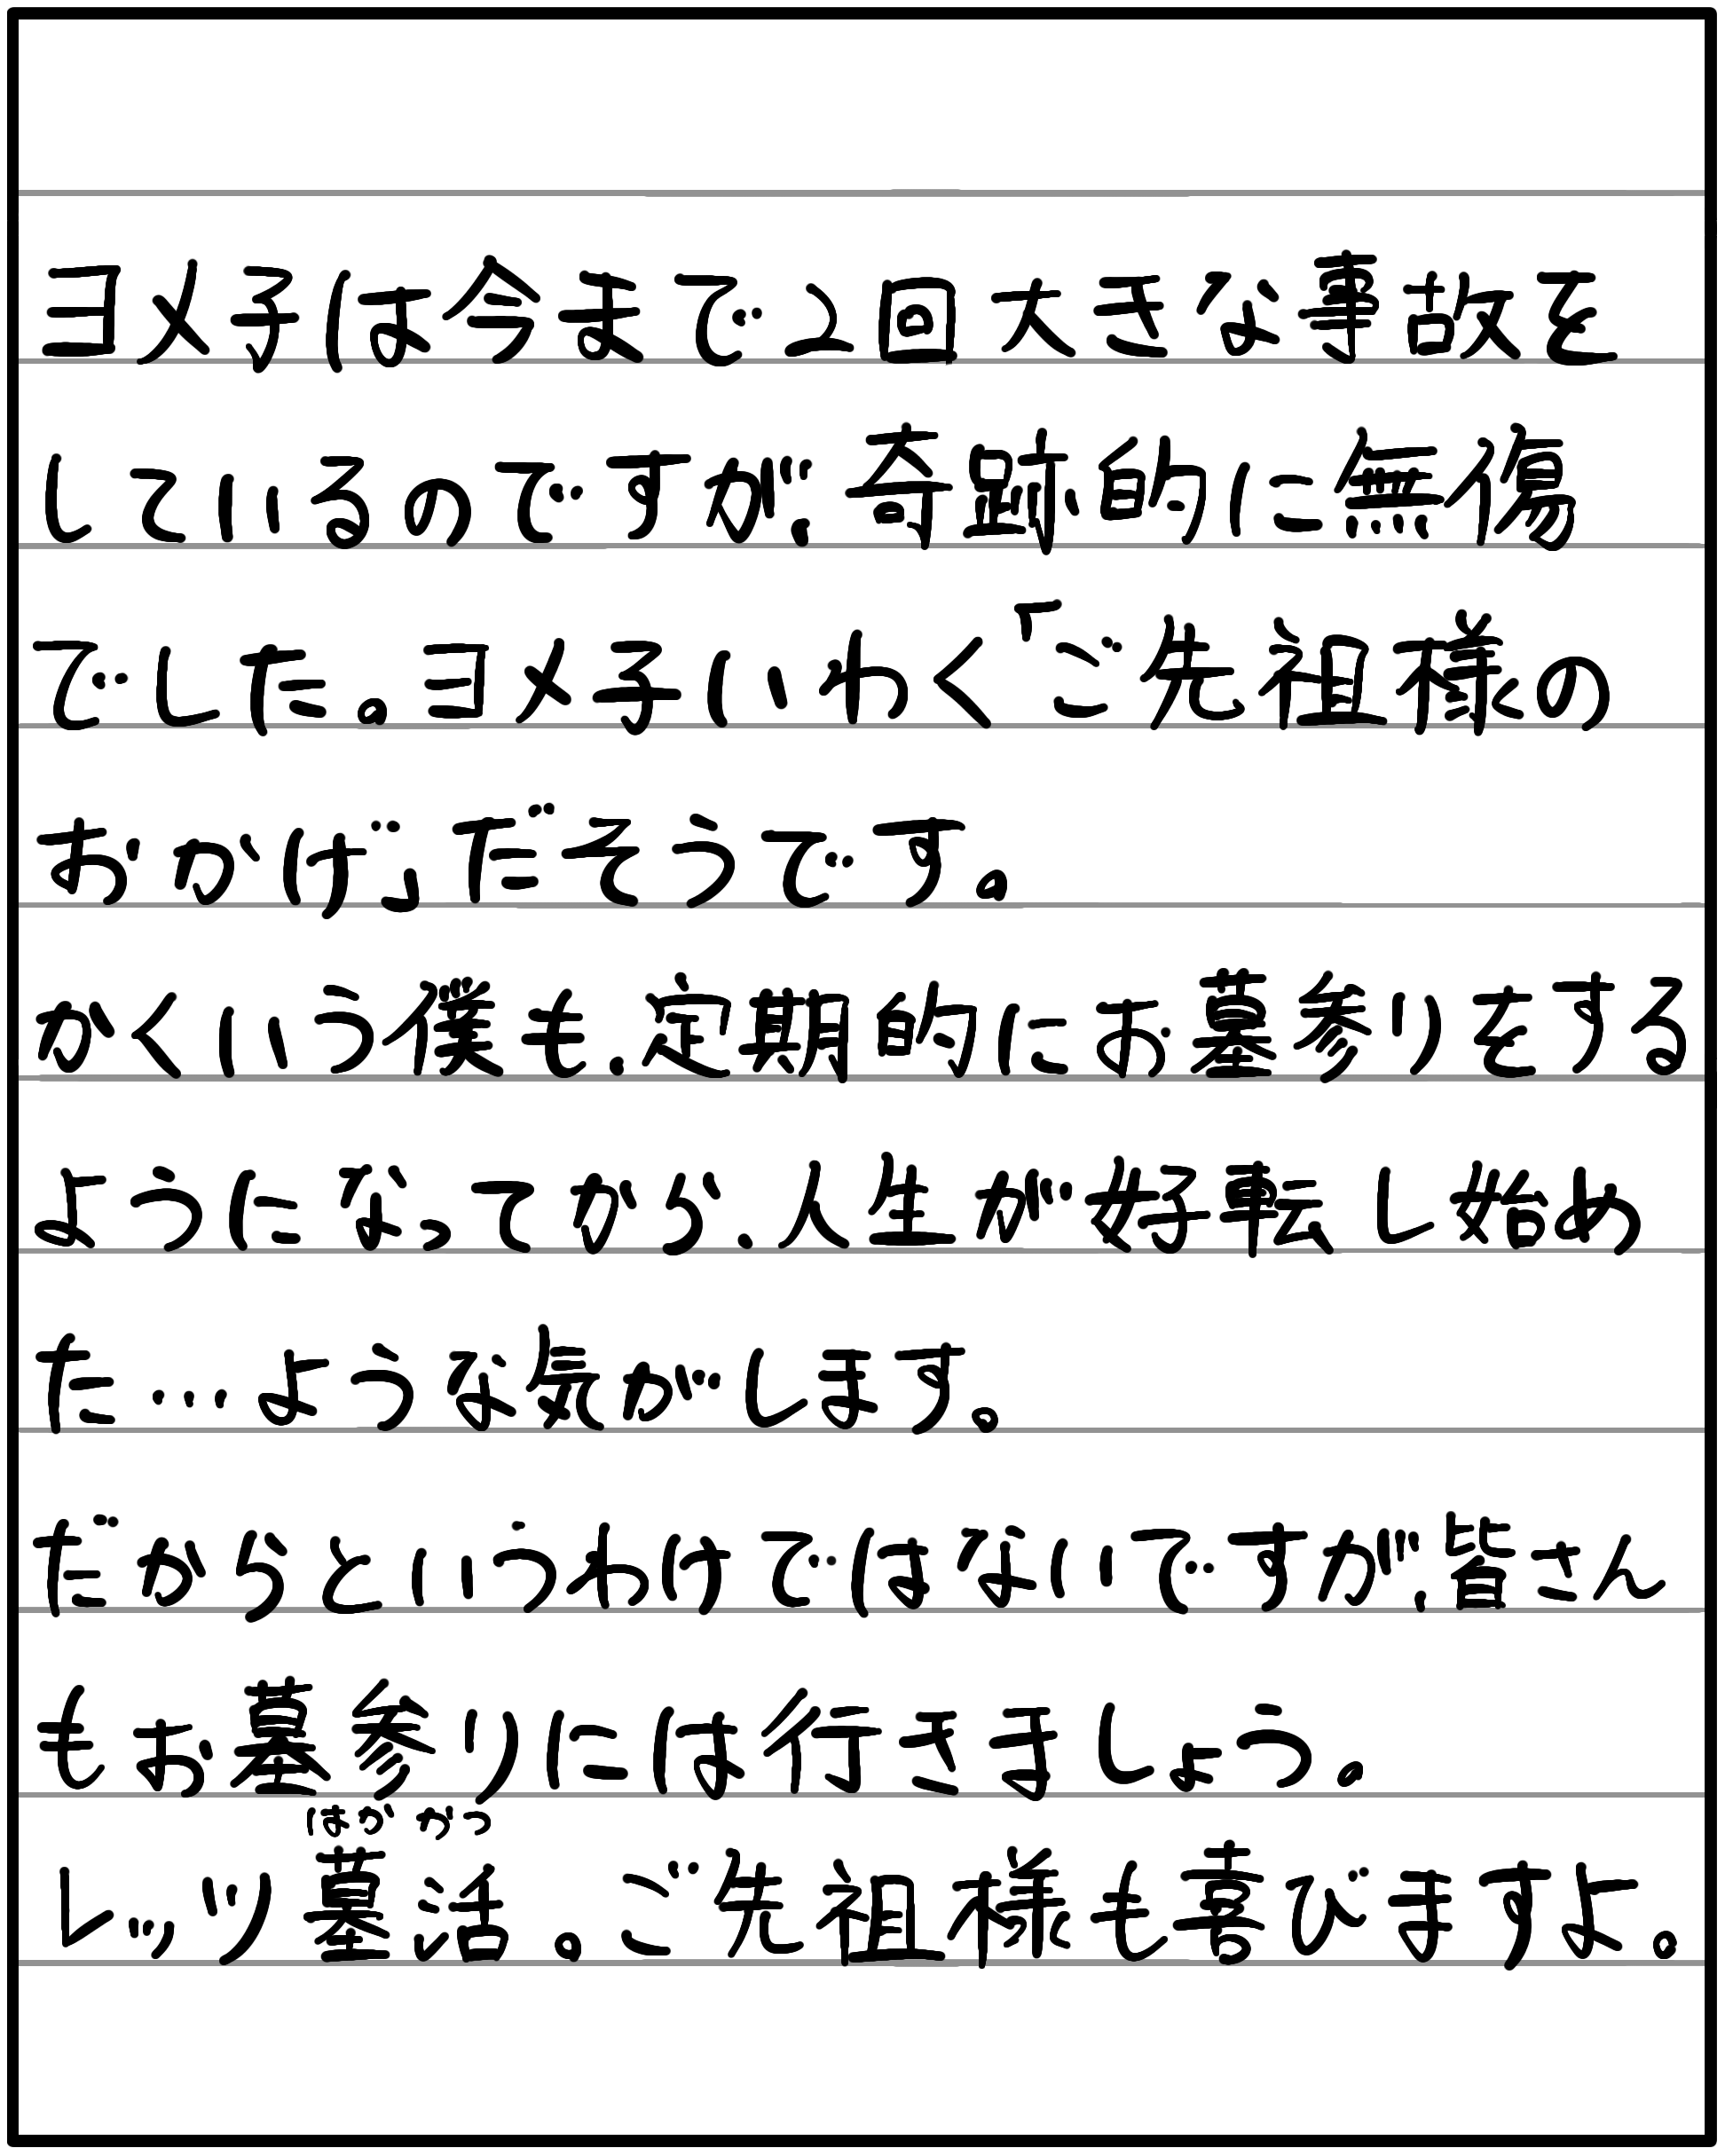 ヨメ子は今まで2回大きな事故を
しているのですが、奇跡的に無傷
でした。ヨメ子いわく「ご先祖様の
おかげ」だそうです。
かくいう僕も、定期的にお墓参りをする
ようになってから、人生が好転し始め
た…ような気がします。
だからというわけではないですが、皆さん
もお墓参りには行きましょう。
はかがつ
レッツ墓活。ご先祖様も喜びますよ。